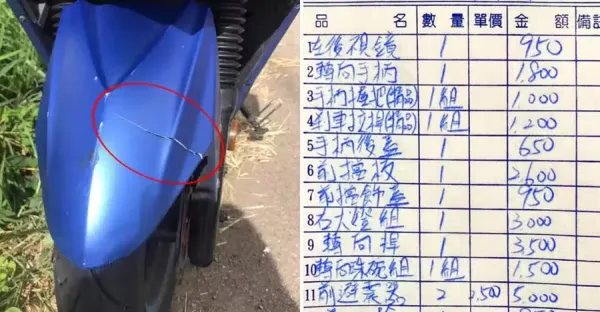 品 名 數量 單價 金 額 備註
左後視鏡 1 950
2 轉向手柄 1 1.800
3 手柄握把(備品) 1組 1.000
4 剎車拉桿(備品) 1組 1.200
5 手柄後蓋 1 650
6 前擋板 1 2.600
7 前擋飾蓋 1 950
8 右大燈組 1 3.000
9 轉向桿 1 3.500
10 轉向珠碗組 1組 1.500
11 前避震器 2 2.500 5.000